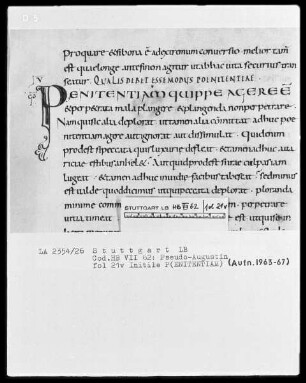 proquare etsibona ē adextrorum conuersio melior tam̄
est quelonge antefinon agitur utabhac uita securius tran
seatur. QUALIS DEBET ESSE MODUS POENITENTIAE
PENITENTIAM QUIPPE AGERE Ē
& perpetrata mala plangere & plangenda non perpetrare.
Nam qui sic alia deplorat ut tamen alia committat adhuc poe
nitentiam agere aut ignorat aut dissimulat. Quid enim
prodest si peccata quis luxurie defleat & tamen adhuc aua
ritiae estibus anhelat. Aut quid prodest si irae culpas iam
lugeat & tamen adhuc inuidie facibus tabescat. sed minus
est ualde quod dicimus ut qui peccata deplorat ploranda
minime comm
uitia timeat
perpetrare
STUTTGART LB HB VII 62 fol 21v
LA 2354/26 Stuttgart LB
Cod.HB VII 62: Pseudo-Augustin
fol 21v Initile P(ENITENTIAM) (Aufn.1963-67)